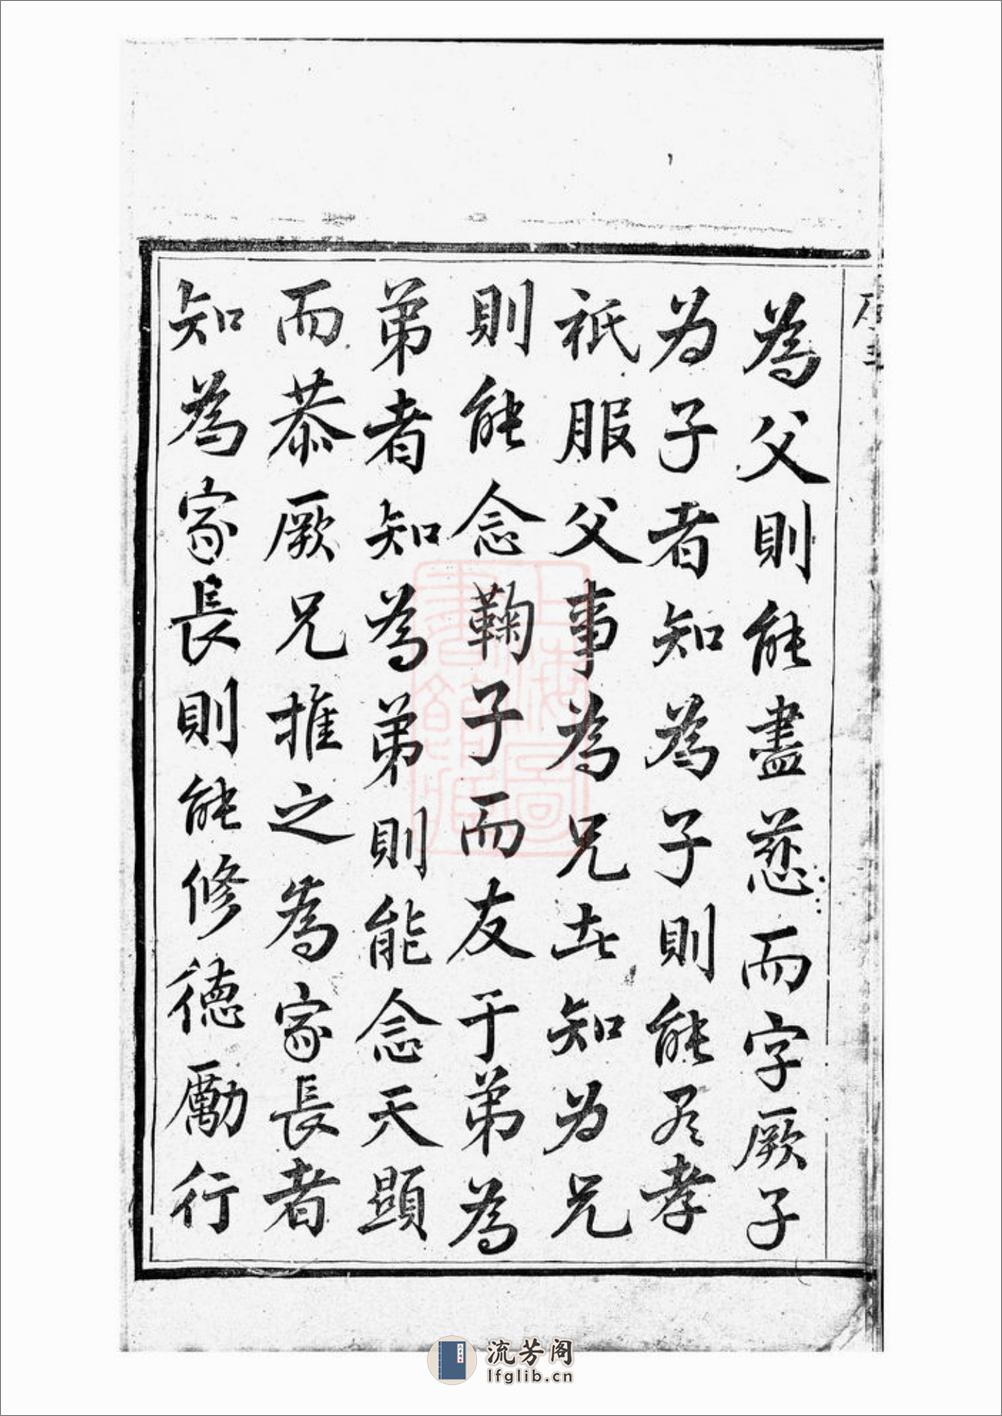 為父則能盡慈而字厥子
为子者知為子則能尽孝
祇服父事為兄者知为兄
則能念鞠子而友于弟為
弟者知為弟則能念天顯
而恭厥兄推之為家長者
知為家長則能修德勵行
流芳阁
lfglib.cn